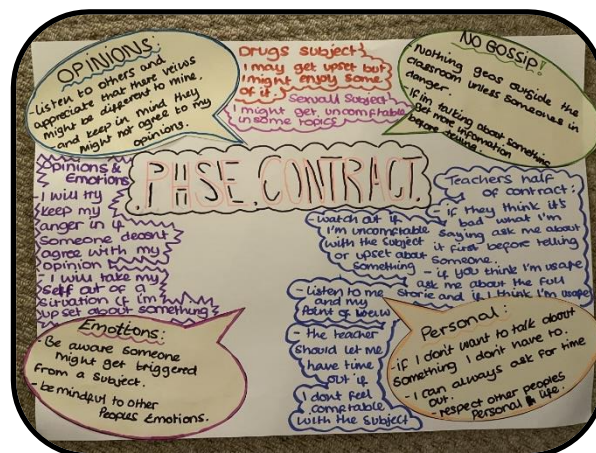 OPINIONS:
-Listen to others and
appreciate that there veiws
might be different to mine.
-and keep in mind they
might not agree to my
opinions.
Drugs subject}
I may get upset but
I might enjoy some
of it.
Sexuall Subject
I might get uncomftable
in some topics
NO GOSSIP!
Nothing goes outside the
classroom unless someones in
danger.
- If im talking about something
Get more information
before telling.
PHSE CONTRACT.
Opinions &
Emotions
- I will try
keep my
anger in if
someone doesnt
agree with my
opinion
- I will take my
self out of a
situation if im
upset about something
Teachers half
of contract:
- if they think it's
bad what I'm
saying ask me about
it first before telling
someone.
- if you think I'm usafe
ask me about the full
storie and if I think I'm usafe
-watch out if
I'm uncomftable
with the subject
or upset about
something
- Listen to me
and my
Point of veiw
- the teacher
should let me
have time
out if
I dont feel
comftable
with the subject
Emotions:
- Be aware someone
might get triggered
from a subject.
- be mindful to other
Peoples Emotions.
Personal:
-if I don't want to talk about
something I don't have to.
-I can always ask for time
out.
-respect other peoples
Personal life.